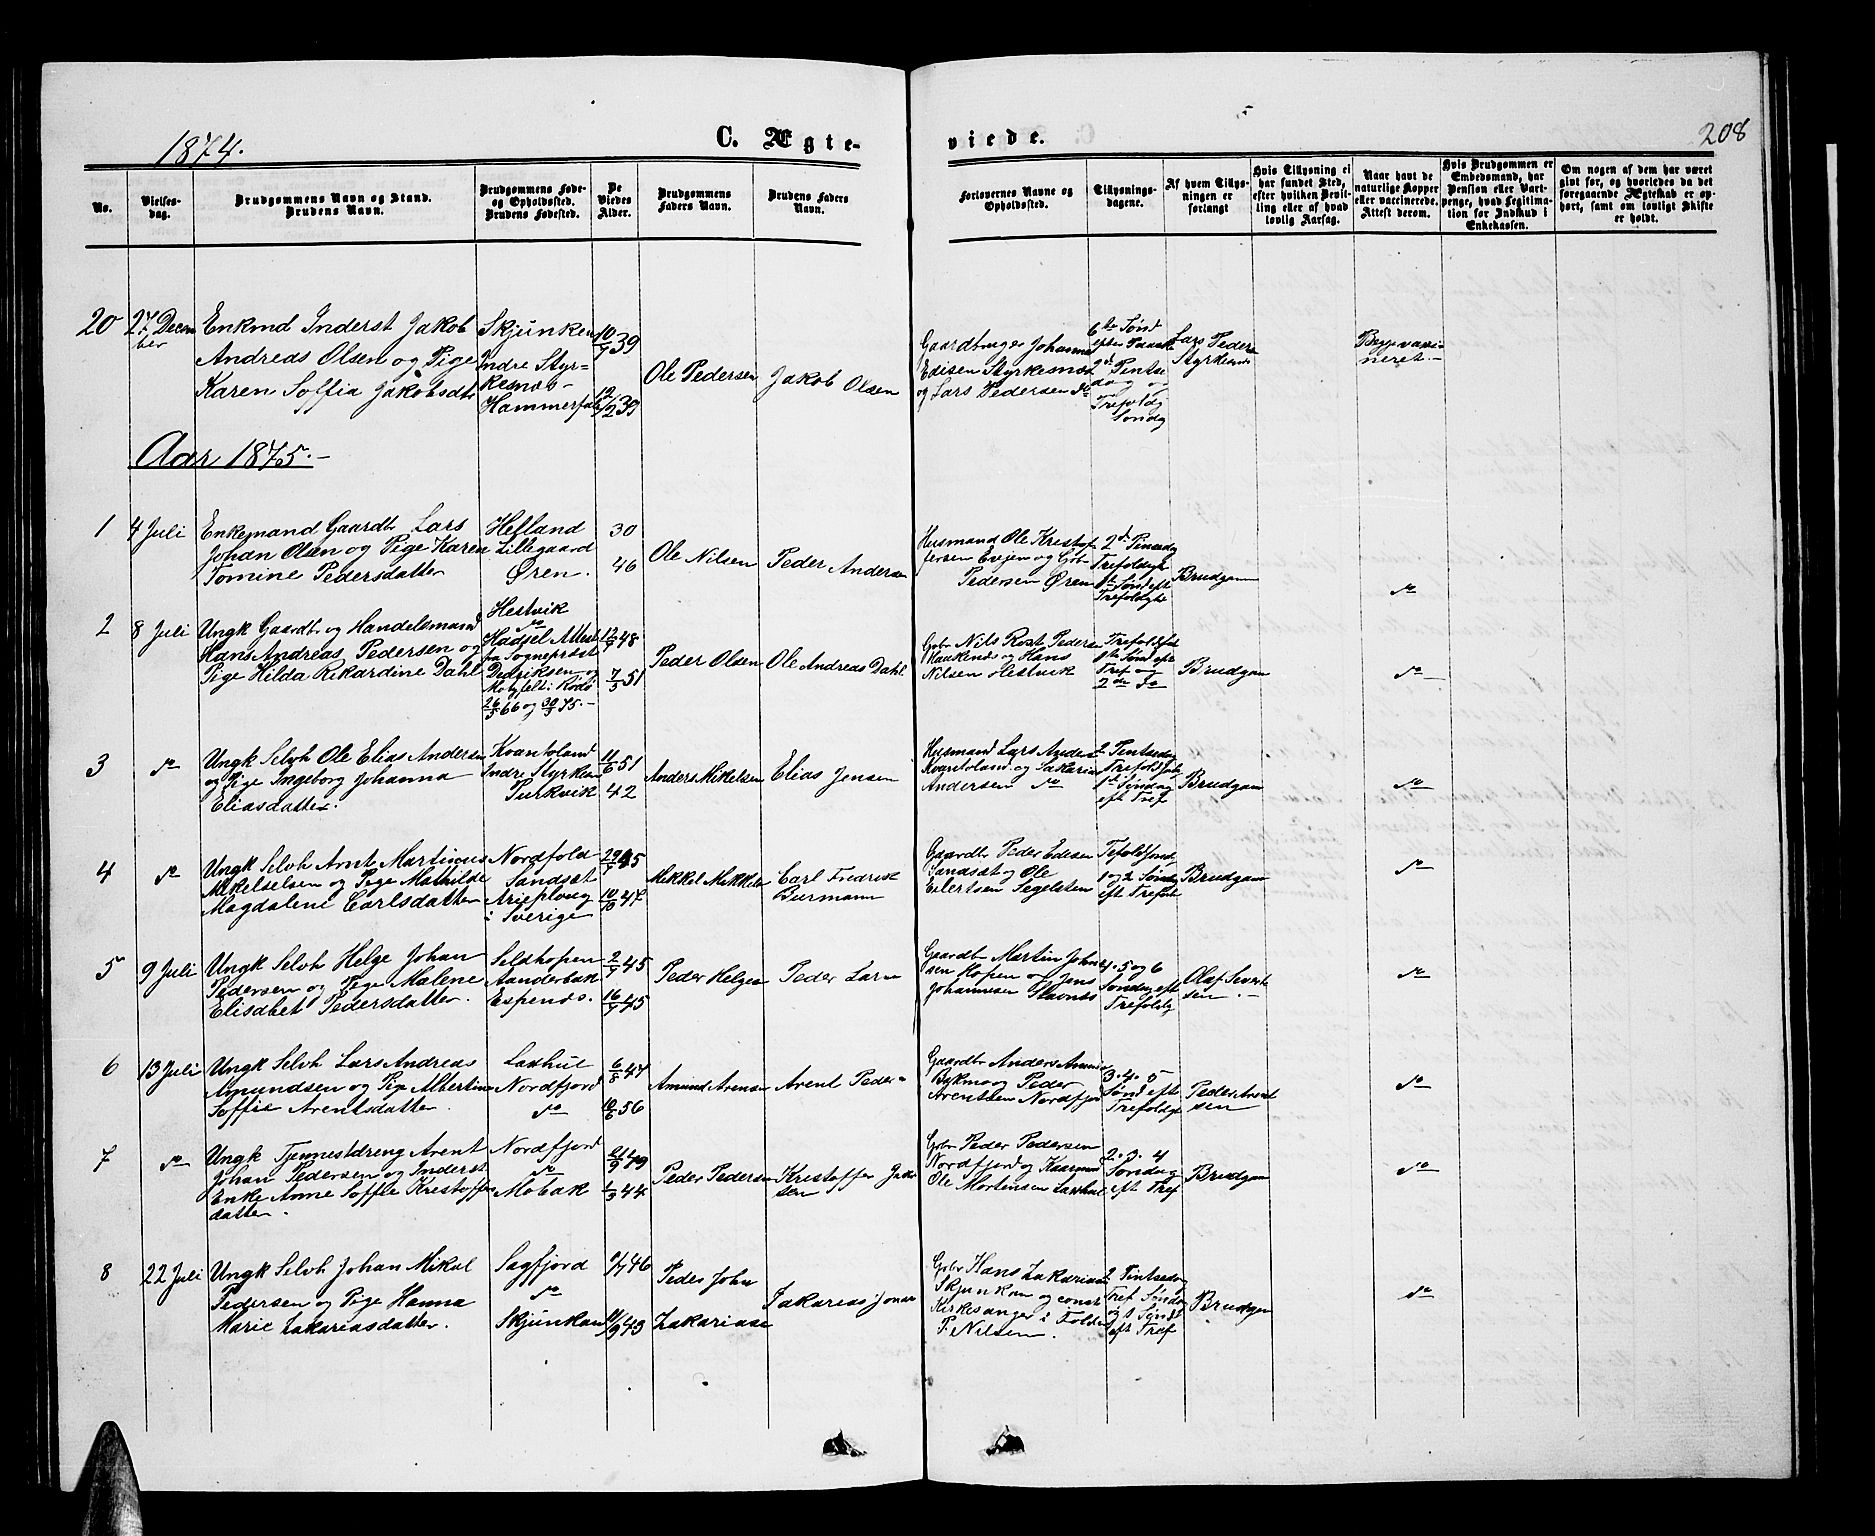 1874.
C. Ægte-
viede.
208
No.
Vielses-
dag.
Brudgommens Navn og Stand.
Brudens Navn.
Brudgommens Føde-
og Opholdssted.
Brudens Fødested.
De
Viedes
Alder.
Brudgommens
Faders Navn.
Brudens Faders
Navn.
Forlovernes Navne og
Opholdssted.
Tillysnings-
dagene.
Af hvem Tillys-
ningen er
forlangt
Hvis Tillysning ei
har fundet Sted,
efter hvilken Bevil-
ling eller af hvad
lovlig Aarsag.
Naar havt de
naturlige Kopper
eller vaccinerede.
Attest derom.
Hvis Brudgommen er
Embedsmand, har
Pension eller Vart-
penge, hvad Legitima-
tion for Indskud i
Enkekassen.
Om nogen af dem har været
givt før, og hvorledes da det
foregaaende Ægteskab er op-
hørt, samt om lovligt Skifte
er holdt.
20
27 Decem
ber
Enkmd Inderst Jakob
Andreas Olsen og Pige
Karen Soffia Jakobsdtr
Skjunken
Indre Styr=
kesnæs-
Hammerfest
10/7 39
12/2 39
Ole Pedersen
Jakob Olsen
Gaardbruger Johannes
Edisen Styrkesnæs
og Lars Pedersen do
6te Sønd
efter Paaske
2d Pintse
dag og
Trefoldg
Søndag
Lars Peders
Styrkesnæs
Begge vacci
neret.-
Aar 1875.-
1
4 Juli
Enkemand Gaardbr Lars
Johan Olsen og Pige Karen
Tomine Pedersdatter
Hefland
Lillegaard
Øren.
30
46
Ole Nilsen
Peder Andersen
Husmand Ole Kristof
fersen Evjen og Gbr
Pedersen Øren
2d Pinsedg
Trefoldigh
1ste Sønd eft
Trefoldigh
Brudgom
do
2
8 Juli
Ungk Gaardbr og Handelsmand
Hans Andreas Pedersen og
Pige Hilda Rikardine Dahl
Hestvik
do
Hadsel Attest
fra Sogneprest
Dedriksen og
i Rødø
26/5 66 og 30/5 75.-
12/7 48
7/5 51
Peder Olsen
Ole Andreas Dahl
Gbr Nils Rost Peders
og Hans
Nilsen Hestvik
Trefoldfest
1ste Sønd eft
Tref og
2den do
Brudgom
do
3
do
Ungk Selvh Ole Elias Andersen
og Pige Ingeborg Johanna
Eliasdatter.
Kvantoland
Indre Styrkesn
Purkvik
11/6 51
42
Anders Mikelsen
Elias Jensen
Husmand Lars Anders
Kvantoland og Sakarias
Andersen do
2 Pintsedag
Trefoldfest
1st Søndag
eft Tref
Brudgom
do
4
do
Ungk Selvh Arnt Martinus
Mikelsen og Pige Mathilde
Magdalene Carlsdatter
Nordfold
Sandsæt
Arieploug
i Sverige
29/7 45
10/10 47
Mikkel Mikkels
Carl Fredrik
Burmann
Gaardbr Peder Edisen
Sandsæt og Ole
Eilertsen Segelsten
Trefoldfsønd
1 og 2 Sønd
eft Trefold
Brudgom
do
5
9 Juli
Ungk Selvh Helge Johan
Pedersen og Pige Malene
Elisabet Pedersdatter.
Seldhopen
Aanderbak
Espenes.
2/7 45
16/7 45
Peder Helges
Peder Larsen
Gaardbr Martin John
sen Hopen og Jens
Johannesen Stavnæs
4. 5 og 6
Søndag eft
Trefoldg
Olaf Sivert
sen.-
do
6
13 Juli
Ungk Selvh Lars Andreas
Amundsen og Pige Albertine
Soffie Arentsdatter.
Laxhul
Nordfjord
do
6/8 47
10/6 56
Amund Arensen
Arent Peders
Gaardbr Anders Amund
Bykmo og Peder
Arentsen Nordfjord
3. 4. 5
Sønd eft
Trefoldigh
Peder Arent
sen
do
7
do
Ungk Tjenestdreng Arent
Johan Pedersen og Inderst
Enke Anne Soffie Kristoffers
datter.
Nordfjord
do
Mobak
21/9 49
1/3 44
Peder Pedersen
Kristoffer Jakob
sen
Gbr Peder Pedersen
Nordfjord og Kaarmd
Ole Mortensen Laxhul
2. 3. 4
Søndag
eft Tref
Brudgom
do
8
22 Juli
Ungk Selvh Johan Mikal
Pedersen og Pige Hanna
Marie Zakariasdatter.
Sagfjord
do
Skjunkan
6/7 46
11/9 43
Peder John
Zakariasen
Sakarias Jonas
Gbr Hans Zakariasen
Skjunkan og const
Kirkesanger i Folden
P. Nilsen.
2 Pintsedag
Tref Søndag
og 1 Sønd
eft Tref
Brudgom
do